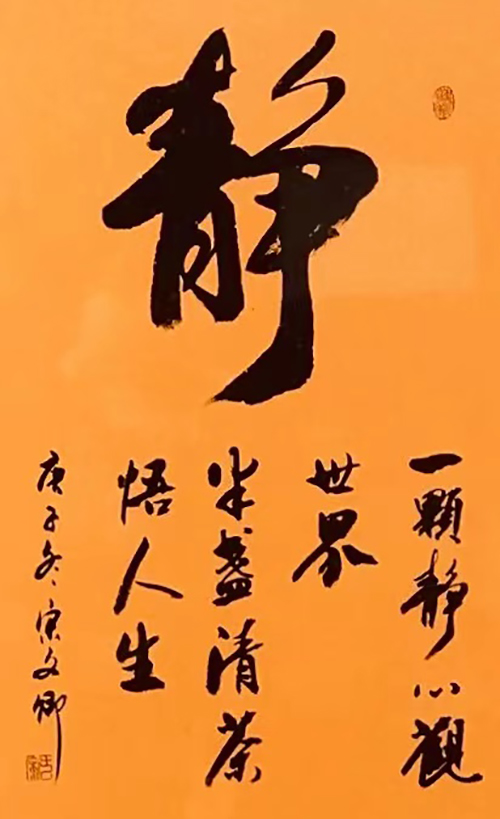 静
一顆静心觀
世界
半盞清茶
悟人生
庚子冬宋文卿